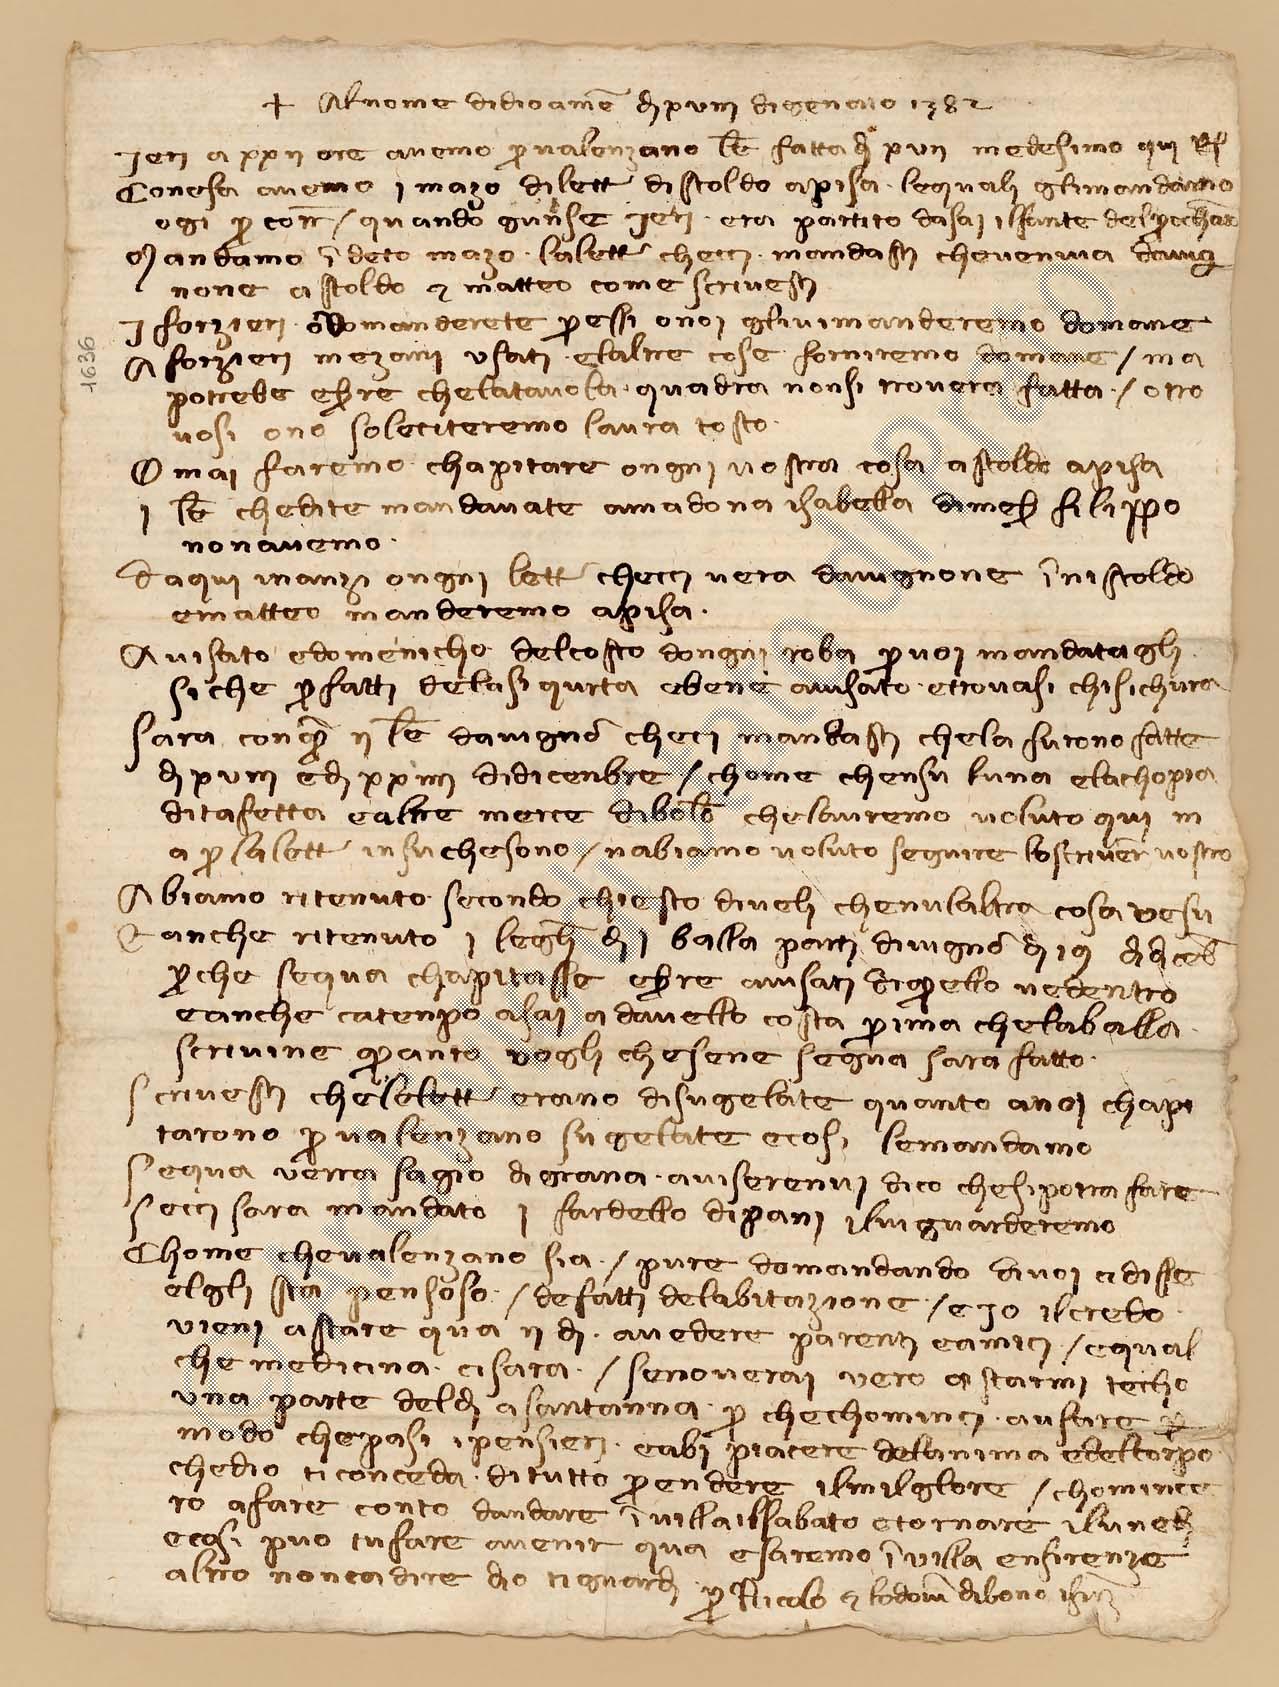 + Al nome didio amē dj xviij digenaio 1382
Jerj a xxij ore avemo p valenzano lrē fatta dj xvij medesimo qui Rs
Conesa avemo j mazo dilett distoldo apisa lequali glimandamo
ogi p con / quando gunse Jerj era partito dasai ilfante del
Mandamo ī deto mazo lalett checi mandasti cheveniva
none astoldo e matteo come scrivestj
J forzierj domanderete pessi onoi glivimanderemo domane
A forzierj mezani usati elaltre cose forniremo domane / ma
potrebe essere chelatavola quadra nonsi trovera fatta / o tro
vosi ono soleciteremo laura tosto
Omai faremo chapitare ongni vostra cosa astoldo apisa
j lrē chedite mandavate amadona isabella dimess filippo
nonavemo
daqui inanzi ongni lett checi vera davignone ī nistoldo
ematteo manderemo apisa
Avisato edomenicho delcosto dongni roba pvoi mandatagli
siche pfatti delasiqurta ebene avisato etrovasi chisichura
Sara con ij lrē davignō checi mandasti chela furono fatte
dj xviij edj xxiiij didicenbre / chome chensu luna elachopia
ditafetta ealtre merce chelauremo voluto qui in
a plalett insuchesono / nabiamo voluto seguire loscriver vostro
Abiamo ritenuto secondo chiesto diveli chenulaltra cosa vesu
E anche ritenuto j legh dj j balla partj divignō dj 19 dj
pche sequa chapitasse essere avisati diqello vedentro
eanche catenpo asai adavello costa prima chelaballa
scrivine qanto vogli chesene segua sara fatto
Scrivestj chelelett erano disugelate quanto anoi chapi
tarono pvalenzano sugelate ecosi lemandamo
Sequa verra sagio digrana aviserenvi dico chesipotra fare
Secci sara mandato j fardello dipani iluiguarderemo
Chome chevalenzano sia / pure domandando divoi cidisse
elgli sta pensoso / defatti delabitazione / eJo ilcredo
vieni astare qua ij dj avedere parenti eamici / equal
che medicina cisara / senoverai vero astarmi techo
una parte deldj asantanna pchechominci aufare p
modo chepasi ipensierj eabi piacere delanima edelcorpo
chedio ticonceda ditutto prendere ilmilglore / chomince
ro afare conto dandare ī villa ilsabato etornare ilunedj
ecosi puo tufare avenir qua esaremo ī villa enfirenze
altro noncadire dio tiguardj
p Nicolo e lodovi dibono
1636